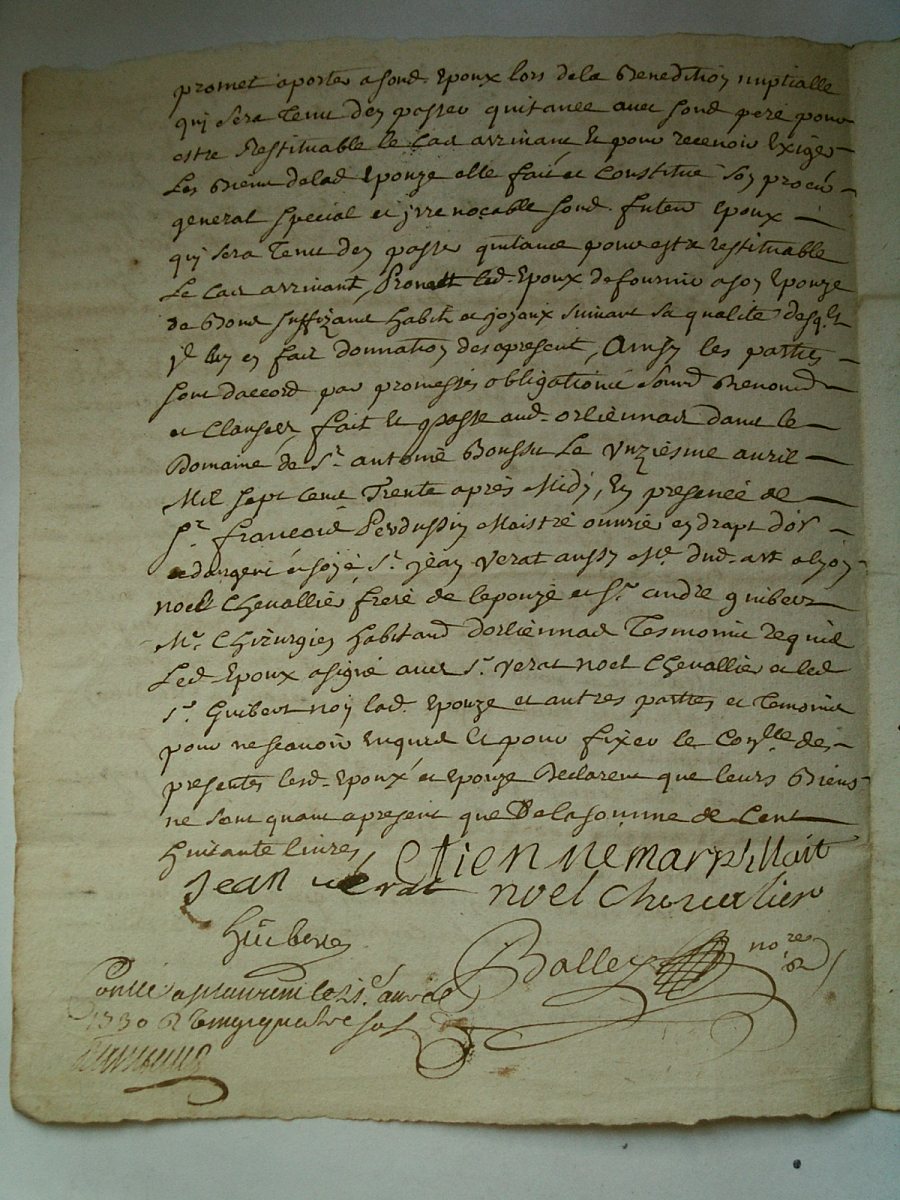 promet aporter a sond. Epoux lors dela Benediction nuptialle
quj sera tenu den passer quitance avec sond pere pour
estre Restituable le Cas arrivant Et pour recevoir Exiger
Les Biens delad Epouze elle fait et Constitue son procur
general special et jrrevocable sond. futeur Epoux
quj sera tenu den passer quitance pour estre restituable
Le Cas arrivant, Promet led. Epoux de fournir a son Epouze
de Bons suffizans habits et joyaux suivant sa qualité desqls
jl luy en fait donnation des apresent, Ainsy les parties
sont daccord par promesses obligations Renond
et Clauses, fait Et passé aud. orliennas dans le
Domaine de Sr. antoine Boussu Le Vnziesme avril
Mil sept Cent Trente après Midy, En presence de
Sr. françois Perdussin Maistre ouvrier en drapt dor
dargent et soye Sr. jean Verat aussy Me. dud. art a lyon
noel Chevallier frere de lepouze et Sr. andre guibert
Mr. Chirurgien habitans dorliennas Tesmoins requis
Led. Epoux a signé avec Sr. Verat noel Chevallier et led
Sr. Guibert non lad. Epouze et autres parties et temoins
pour ne scavoir Enquis Et pour fixer le Conlle des
presentes lesd. Epoux et Epouze Declarent que leurs Biens
ne sont quant apresent que De la somme de Cent
huitante livres
Etiennemarphillait
Jean verat noel Chevalier
Guibert
Balley nore
Conllé a St laurent le 21e. avril
1730 R vingt quatre sols